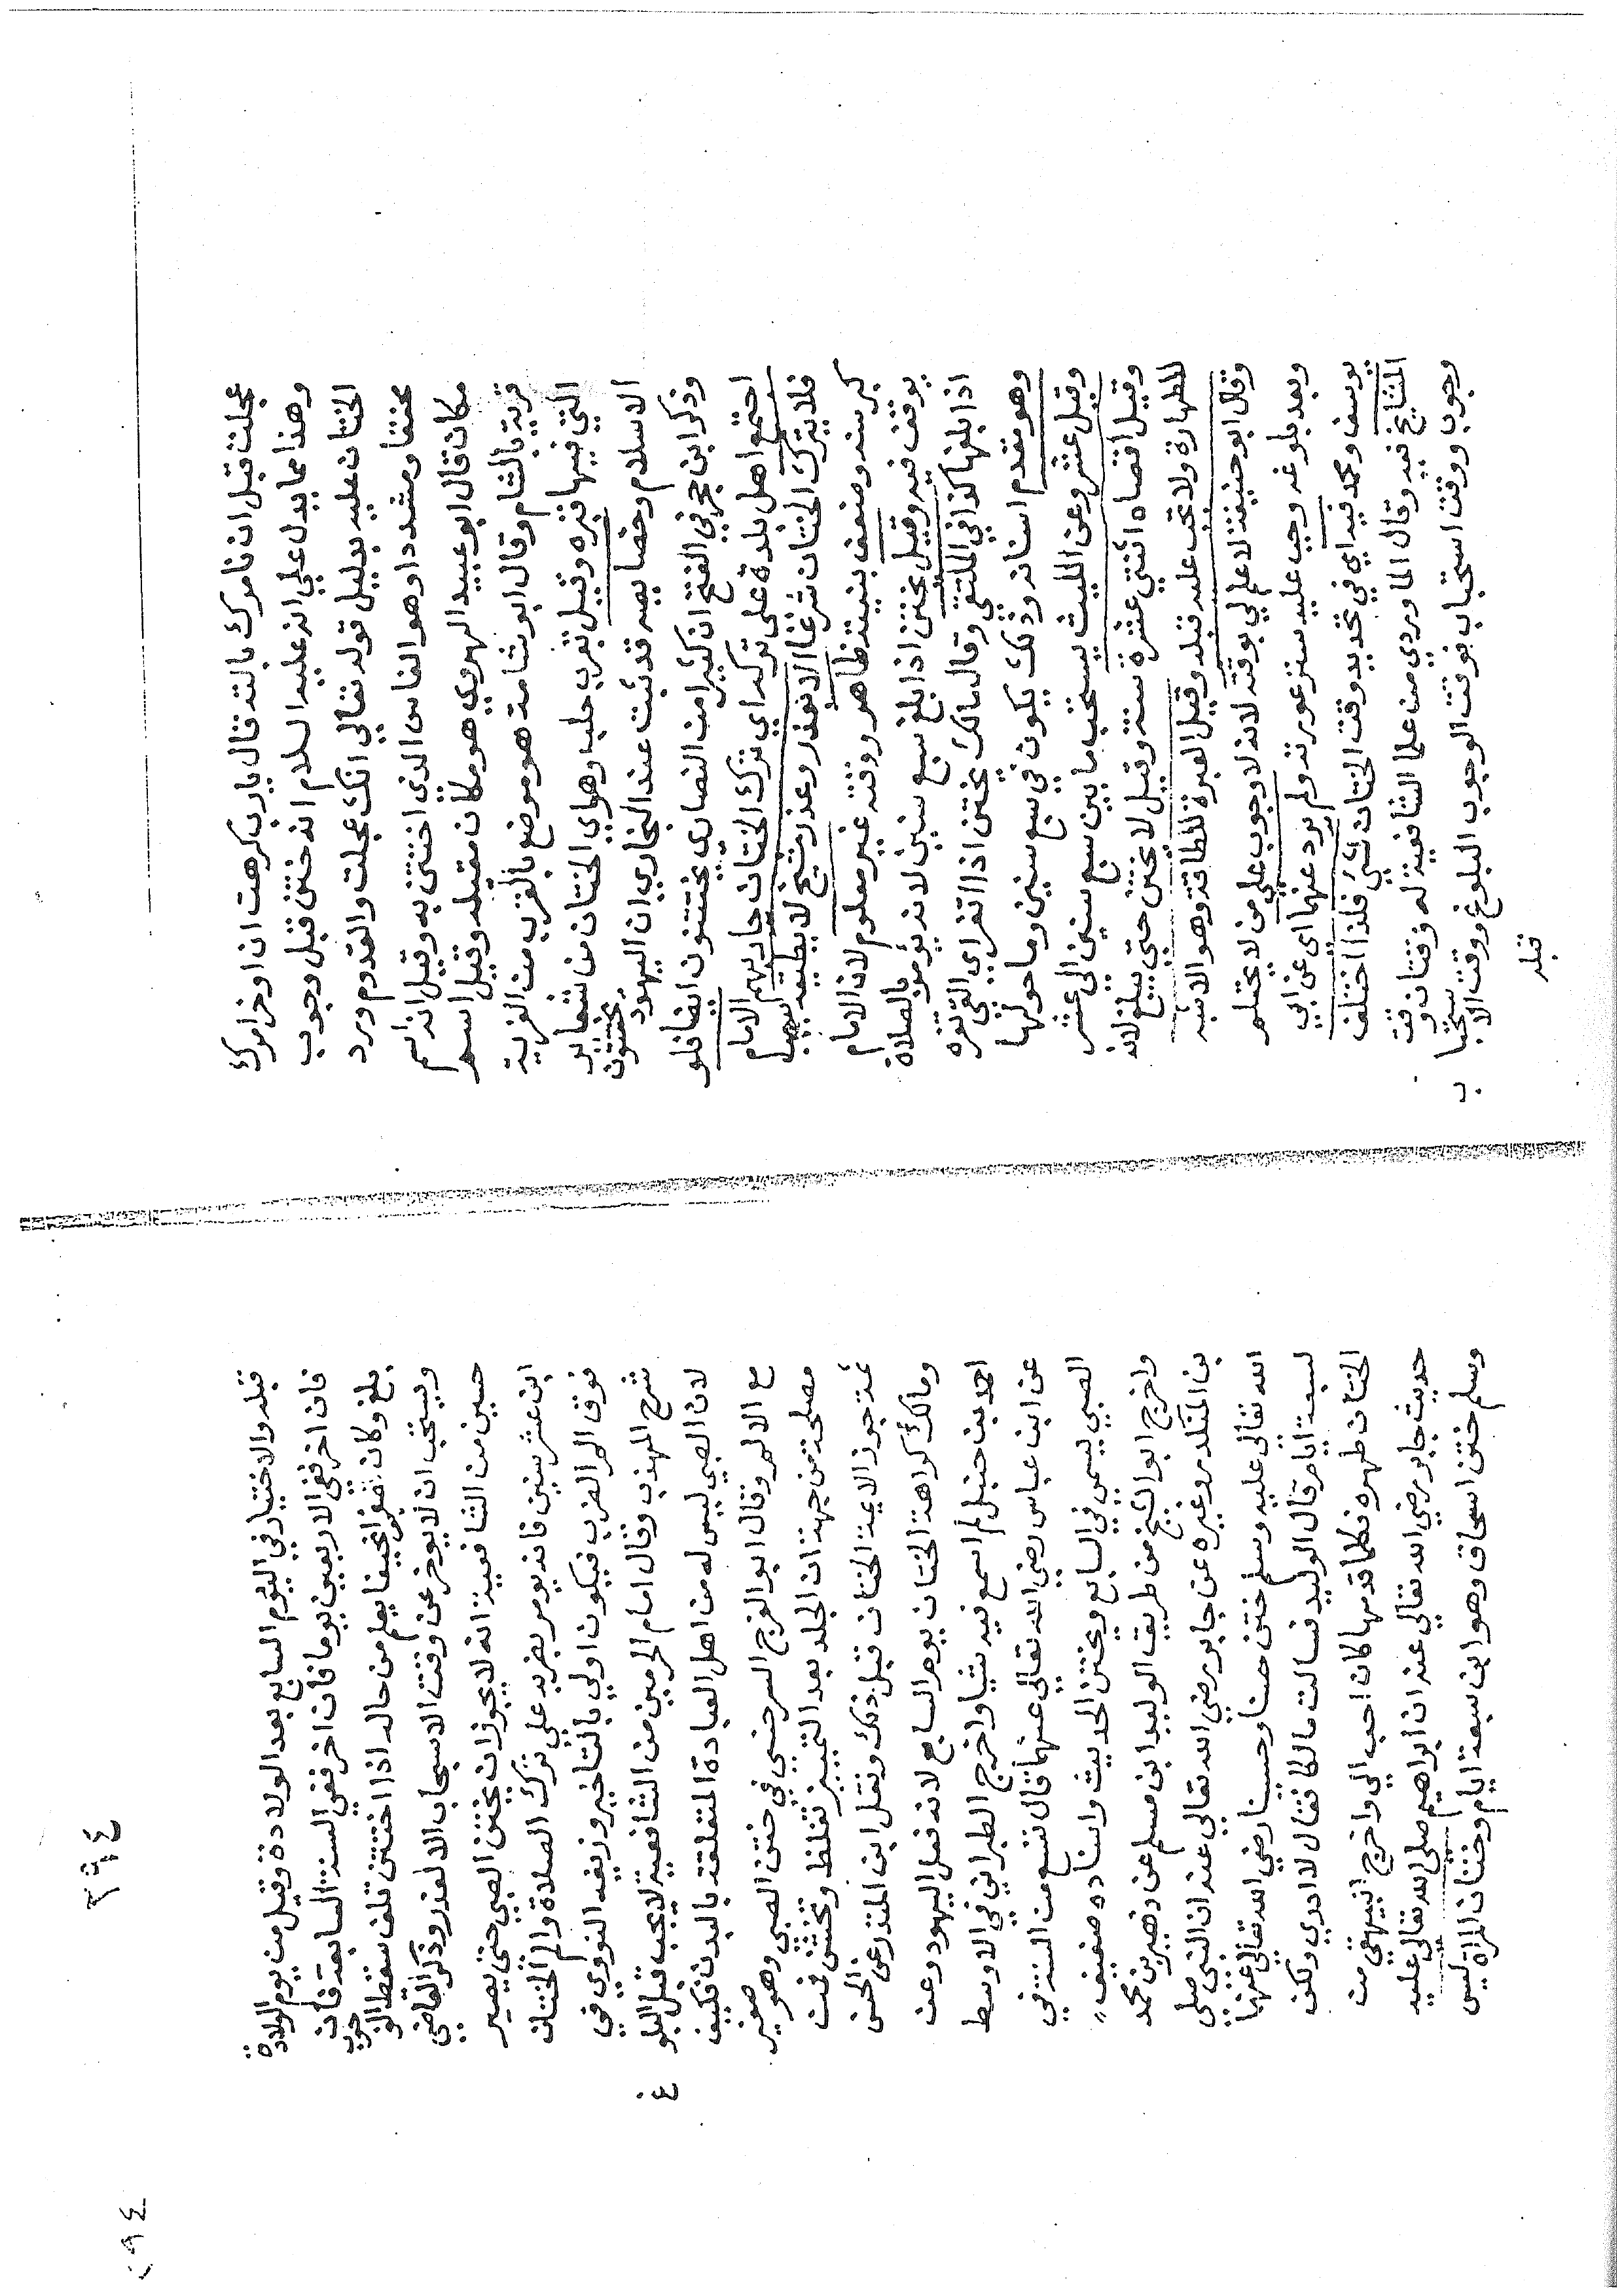 عجلت قبل ان نامرك بالته قال يا رب كرهت ان اوخر امرك
وهذا مما يدل علي انه عليه السلام انه ختن قبل وجوب
الختان عليه بدليل قوله تعالي انك عجلت والقدوم ورد
مخففا ومشددا وهو الفاس الذي اختتن به وقيل انه اسم
مكان قال ابو عبيد الهروي هو مكان مقيله وقيل اسم
قرية بالشام وقال ابو شامة هو موضع بالقرب من القرية
التي فيها قبره وقيل بقرب حلب وهو اي الختان من شعاير
الاسلام وخصايصه قد ثبت عند البخاري ان اليهود يختتنون
وذكر ابن حجر في الفتح ان كثيرا من النصاري يختتنون ايضا فلو
اجتمع اهل بلدة علي تركه اي ترك الختان حاربهم الامام
فلا يترك الختان شرعا الا لعذر وعذر شيخ لا يطيقه لهما
كبر سنه وضعف بنيته ظاهر ووقته غير معلوم لان الامام
يوقف فيه وقيل يختن اذا بلغ سبع سنين لانه يؤمر بالصلاة
اذا بلغها كذا في الملتقي وقال مالك يختن اذا اثغر اي القي ثغره
وهو مقدم اسنانه وذلك يكون في سبع سنين وما حولها
وقيل عشر وعن الليث يستحب ما بين سبع سنين الي عشر
وقيل اقصاه اثنتي عشرة سنة وقيل لا يختن حتي يبلغ لانه
للطهارة ولا تجب عليه قبله وقيل العبرة للطاقة وهو الاشبه
وقال ابو حنيفة لا علم لي بوقته لانه لا وجوب علي من لا يحتلم
وبعد بلوغه وجب عليه ستر عورته ولم يرد عنهما اي عن ابي
يوسف ومحمد فيه اي في تحديد وقت الختان شي فلذا اختلف
المشايخ فيه وقال الماوردي من علما الشافعية له وقتان وقت
وجوب ووقت استحباب فوقت الوجوب البلوغ ووقت الاستحباب
قبله
٢٩٤
٢٩٤
قبله والاختيار في اليوم السابع بعد الولادة وقيل من يوم الولادة
فان اخر ففي الاربعين يوما فان اخر ففي السنة السابعة فان
بلغ وكان نضوا نحيفا يعلم من حاله اذا اختتن تلف سقط الوجوب
ويستحب ان لا يوخر عن وقت الاستحباب الا لعذر وذكر القاضي
حسين من الشافعية انه لا يجوز ان يختتن الصبي حتي يصير
ابن عشر سنين فانه يومر بضربه علي ترك الصلاة والم الختان
فوق الم الضرب فيكون اولي بالتاخير وزيفه النووي في
شرح المهذب وقال امام الحرمين من الشافعية لا يجب قبل البلوغ
لان الصبي ليس له من اهل العبادة المتعلقة بالبدن فكيف
مع الالم وقال ابو الفرج السرخسي في ختن الصبي وهو صغير
مصلحة من جهة ان الجلد بعد التمييز تغلظ وتخشن فمن
ثمة جوز الايمة الختان قبل ذلك ونقل ابن المنذر عن الحسن
ومالك كراهة الختان يوم السابع لانه فعل اليهود وعن
احمد بن حنبل لم اسمع فيه شيا واخرج الطبراني في الاوسط
عن ابن عباس رضي الله تعالي عنهما قال سبع من السنة في
الصبي يسمي في السابع ويختن الحديث واسناده ضعيف
واخرج ابو الشيخ من طريق الوليد ابن مسلم عن زهير بن محمد
بن المنكدر وغيره عن جابر رضي الله تعالي عنه ان النبي صلي
الله تعالي عليه وسلم ختن حسنا وحسينا رضي الله تعالي عنهما
لسبعة ايام قال الوليد فسالت مالكا فقال لا ادري ولكن
الختان طهره فكلما قدمها كان احب الي واخرج البيهقي من
حديث جابر رضي الله تعالي عنه ان ابراهيم صلي الله تعالي عليه
وسلم ختن اسحاق وهو ابن سبعة ايام وختان المراة ليس